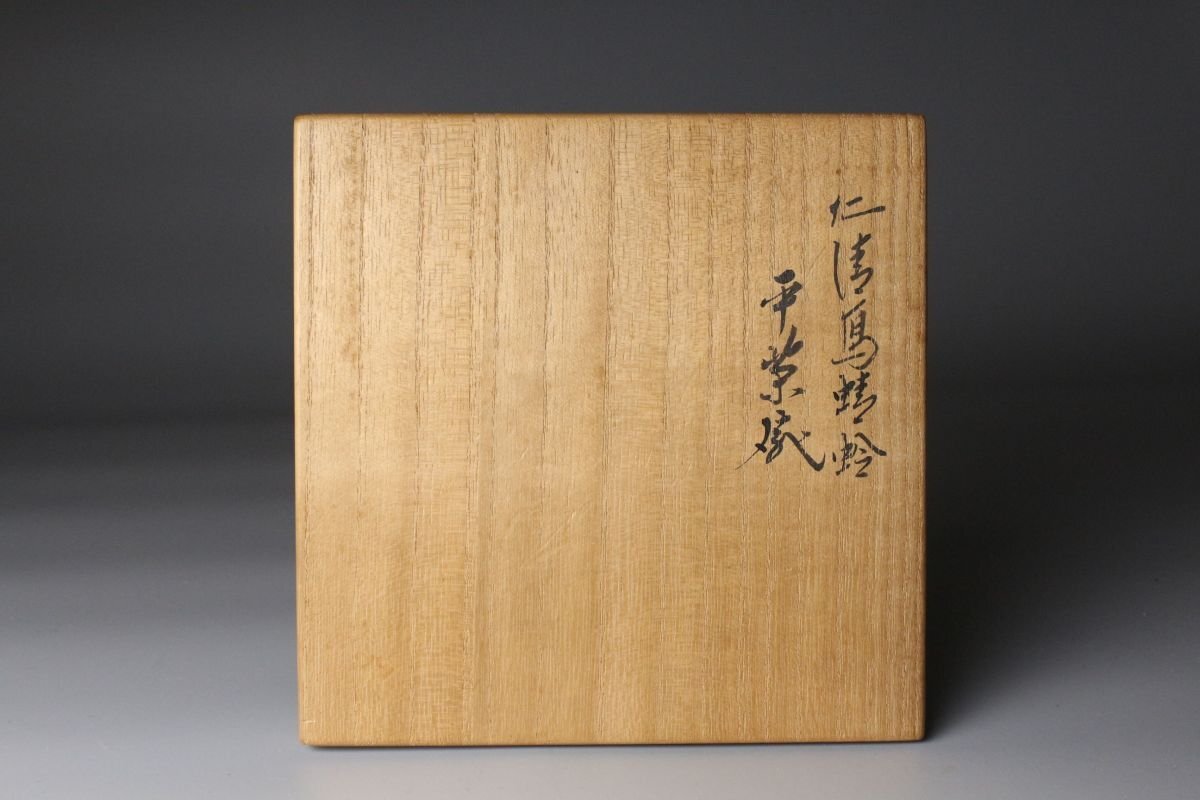 仁清寫蜻蛉
平茶碗